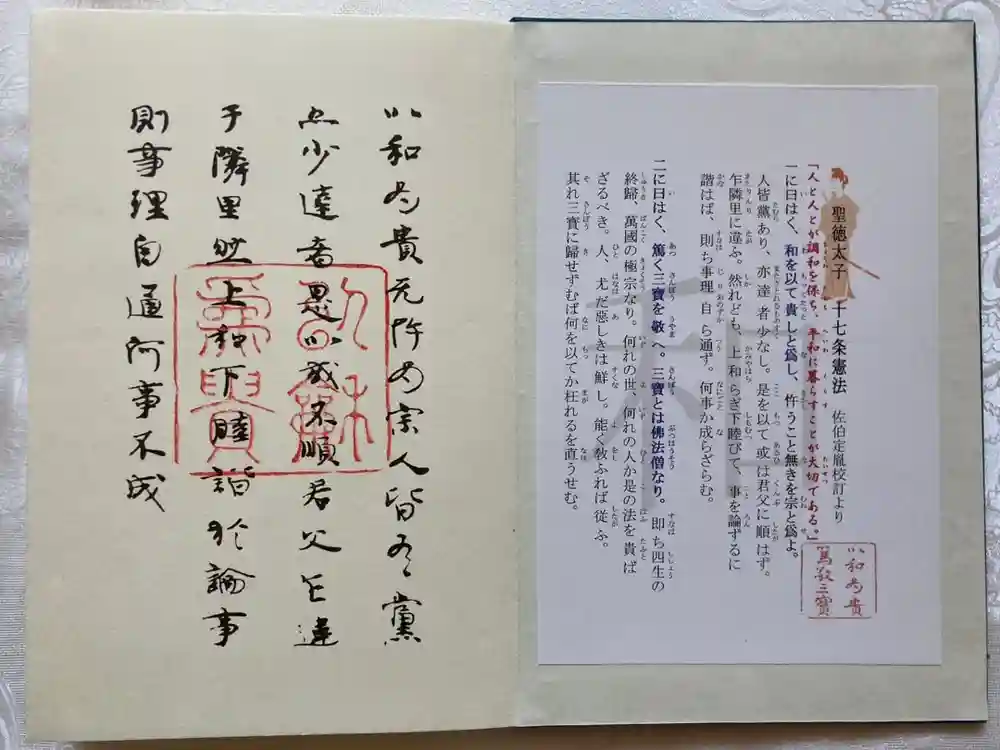 聖徳太子 十七条憲法 佐伯定胤校訂より
「人と人とが調和を保ち、平和に暮らすことが大切である。」
一に曰はく、和を以て貴しと爲し、忤うこと無きを宗と爲よ。
人皆黨あり、亦達者少なし。是を以て或は君父に順はず。
乍隣里に違ふ。然れども、上和らぎ下睦びて、事を論ずるに
諧はば、則ち事理自ら通ず。何事か成らざらむ。
二に曰はく、篤く三寶を敬へ。三寶とは佛法僧なり。即ち四生の
終歸、萬國の極宗なり。何れの世、何れの人か是の法を貴ば
ざるべき。人、尤だ惡しきは鮮し。能く敎ふれば從ふ。
其れ三寶に歸せずむば何を以てか枉れるを直うせむ。
以和為貴
篤敬三寶
以和為貴无忤為宗人皆有黨
亦少達者是以或不順君父乍違
于隣里然上和下睦諧於論事
則事理自通何事不成
以和
為貴